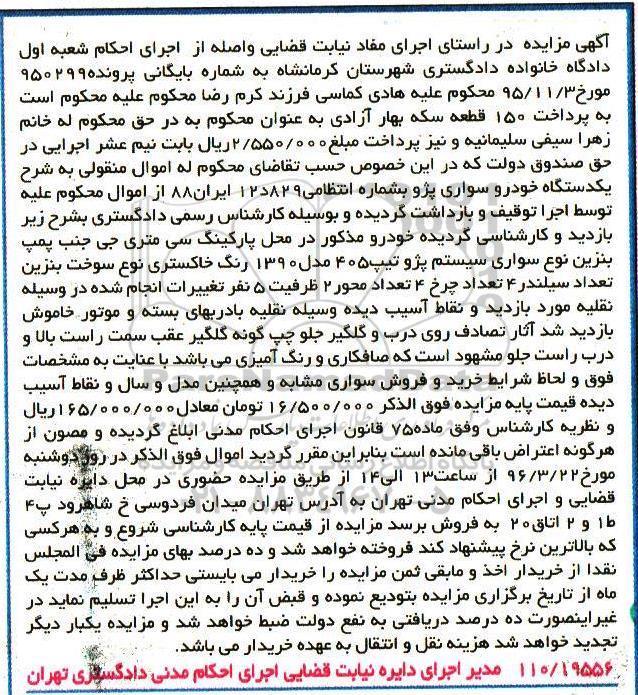 آگهی مزایده در راستای اجرای مفاد نیابت قضایی واصله از اجرای احکام شعبه اول
دادگاه خانواده دادگستری شهرستان کرمانشاه به شماره بایگانی پرونده۹۵۰۲۹۹
مورخ۹۵/۱۱/۳ محکوم علیه هادی کماسی فرزند کرم رضا محکوم علیه محکوم است
به پرداخت ۱۵۰ قطعه سکه بهار آزادی به عنوان محکوم به در حق محکوم له خانم
زهرا سیفی سلیمانیه و نیز پرداخت مبلغ۲/۵۵۰/۰۰۰ریال بابت نیم عشر اجرایی در
حق صندوق دولت که در این خصوص حسب تقاضای محکوم له اموال منقولی به شرح
یکدستگاه خودرو سواری پژو بشماره انتظامی۸۲۹د۱۲ ایران۸۸ از اموال محکوم علیه
توسط اجرا توقیف و بازداشت گردیده و بوسیله کارشناس رسمی دادگستری بشرح زیر
بازدید و کارشناسی گردیده خودرو مذکور در محل پارکینگ سی متری جی جنب پمپ
بنزین نوع سواری سیستم پژو تیپ۴۰۵ مدل۱۳۹۰ رنگ خاکستری نوع سوخت بنزین
تعداد سیلندر۴ تعداد چرخ ۴ تعداد محور۲ ظرفیت ۵ نفر تغییرات انجام شده در وسیله
نقلیه مورد بازدید و نقاط آسیب دیده وسیله نقلیه بادربهای بسته و موتور خاموش
بازدید شد آثار تصادف روی درب و گلگیر جلو چپ گونه گلگیر عقب سمت راست بالا و
درب راست جلو مشهود است که صافکاری و رنگ آمیزی می باشد با عنایت به مشخصات
فوق و لحاظ شرایط خرید و فروش سواری مشابه و همچنین مدل و سال و نقاط آسیب
دیده قیمت پایه مزایده فوق الذکر ۱۶/۵۰۰/۰۰۰ تومان معادل۱۶۵/۰۰۰/۰۰۰ریال
و نظریه کارشناس وفق ماده۷۵ قانون اجرای احکام مدنی ابلاغ گردیده و مصون از
هرگونه اعتراض باقی مانده است بنابراین مقرر گردید اموال فوق الذکر در روز دوشنبه
مورخ۹۶/۳/۲۲ از ساعت۱۳ الی۱۴ از طریق مزایده حضوری در محل دایره نیابت
قضایی و اجرای احکام مدنی تهران به آدرس تهران میدان فردوسی خ شاهرود پ۴
ط۱ و ۲ اتاق۲۰ به فروش برسد مزایده از قیمت پایه کارشناسی شروع و به هرکسی
که بالاترین نرخ پیشنهاد کند فروخته خواهد شد و ده درصد بهای مزایده فی المجلس
نقدا از خریدار اخذ و مابقی ثمن مزایده را خریدار می بایستی حداکثر ظرف مدت یک
ماه از تاریخ برگزاری مزایده بتودیع نموده و قبض آن را به این اجرا تسلیم نماید در
غیراینصورت ده درصد دریافتی به نفع دولت ضبط خواهد شد و مزایده یکبار دیگر
تجدید خواهد شد هزینه نقل و انتقال به عهده خریدار می باشد.
۱۱۰/۱۹۵۵۶ مدیر اجرای دایره نیابت قضایی اجرای احکام مدنی دادگستری تهران
ParsNamadData